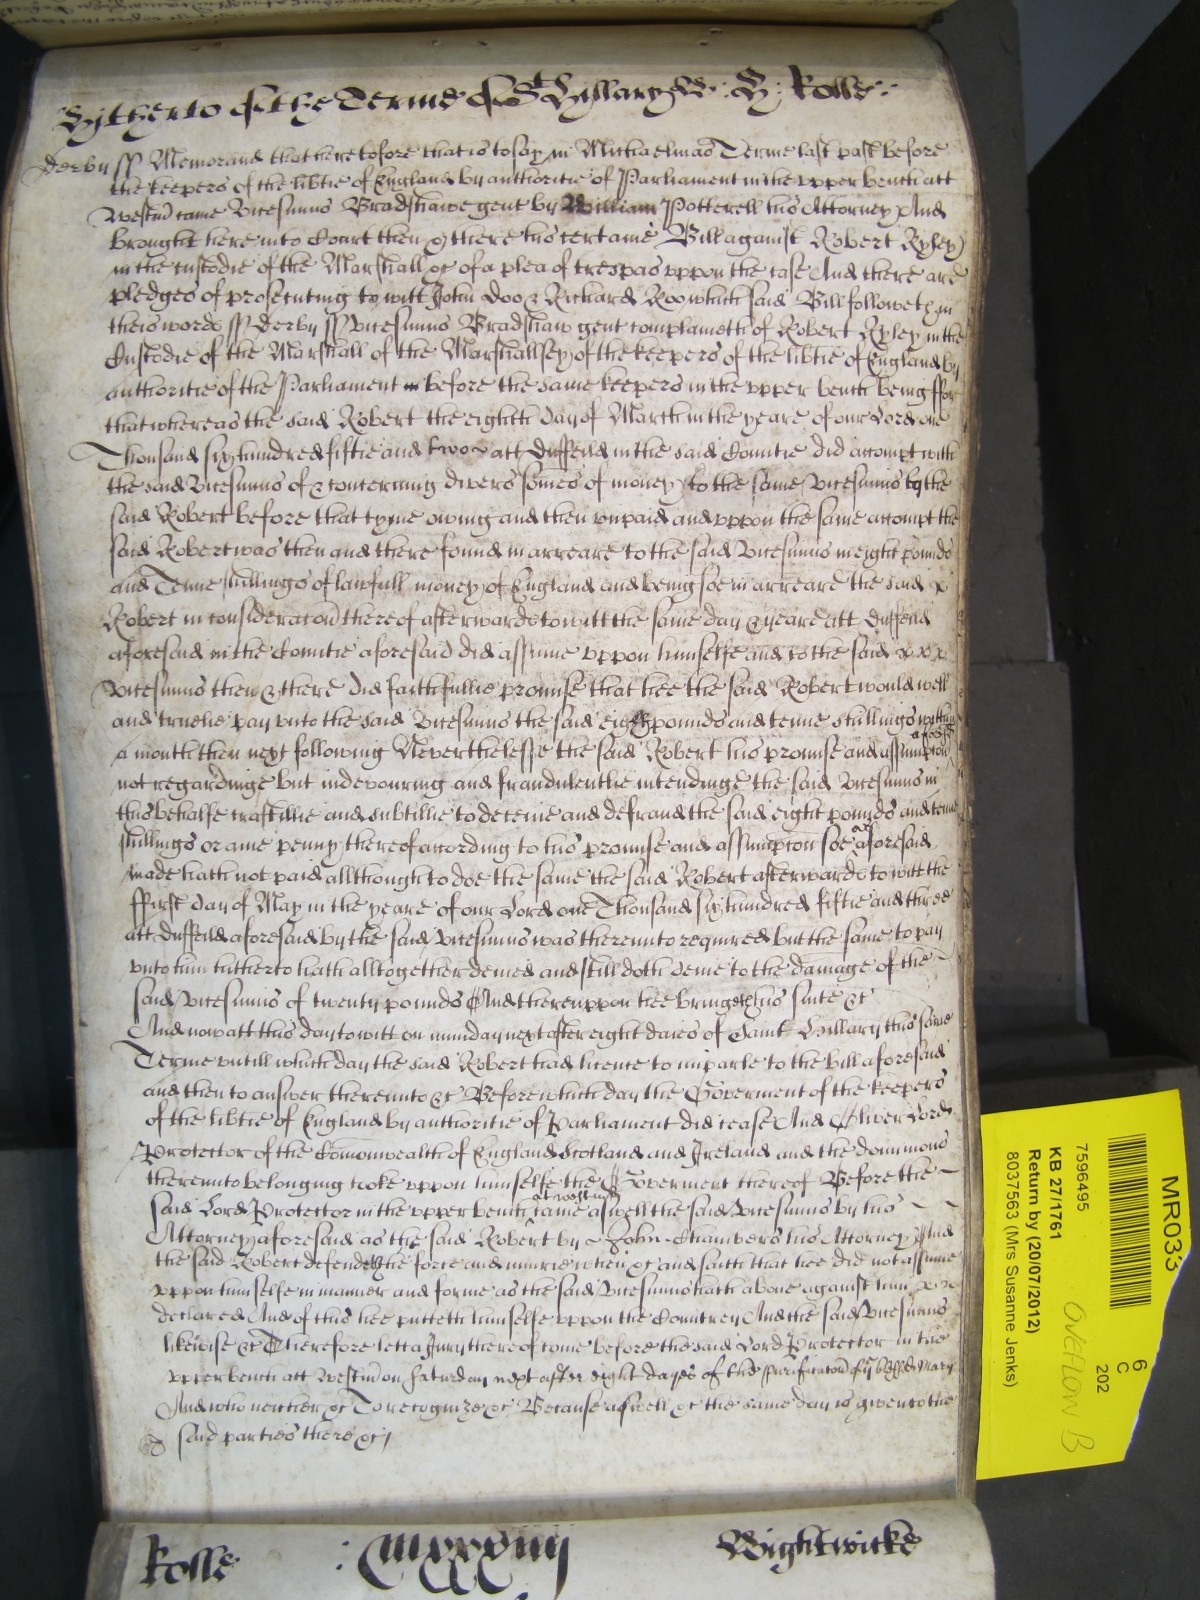 Hitherto of the Terme of St Hillary W: H: Rolle:
derby ss Memorand that heretofore that is to say in Michaelmas Terme last past before
the keepers of the libtie of England by authoritie of Parliament in the vpper bench att
Westm came Vicesimus Bradshawe gent by William Potterell his Attorney And
brought here into Court then & there his certaine Bill against Robert Ryley
in the custodie of the Marshall &c of a plea of trespas vppon the case And there are
pledges of prosecuting to witt John Doo & Richard Roo which said Bill followeth in
theis words ss derby ss Vicesimus Bradshaw gent complaineth of Robert Ryley in the
Custodie of the Marshall of the Marshallsey of the keepers of the libtie of England by
authoritie of the Parliament before the same keepers in the vpper bench being ffor
that whereas the said Robert the eighth day of March in the yeare of our Lord one
Thousand six hundred fiftie and two att Duffeild in the said Countie did accompt with
the said Vicesimus of & concerning divers somes of money to the same Vicesimus by the
said Robert before that tyme owing and then vnpaid and vppon the same accompt the
said Robert was then and there found in arreare to the said Vicesimus in eight pounds
and Tenne shillings of lawfull money of England and being soe in arreare the said x
Robert in consideracon thereof afterwards to witt the same day & yeare att Duffeild
aforesaid in the Countie aforesaid did assume vppon himselfe and to the said x x x
Vicesimus then & there did faithfullie promise that hee the said Robert would well
and truelie pay vnto the said Vicesimus the said eight pounds and tenne shillings within
a month then next following Neverthelesse the said Robert his promise and assumpcon aforesd
not regardinge but indevouring and fraudulentlie intendinge the said Vicesimus in
this behalfe craftillie and subtillie to deceive and defraud the said eight pounds and tenne
shillings or anie penny thereof according to his promise and assumpcon soe as aforesaid
made hath not paid allthough to doe the same the said Robert afterwards to witt the
ffirst day of May in the yeare of our Lord one Thousand six hundred fiftie and three
att Duffeild aforesaid by the said Vicesimus was thereunto required but the same to pay
vnto him hitherto hath alltogether denied and still doth denie to the damage of the
said Vicesimus of twenty pounds And thereuppon hee bringeth his suite &c
And now att this day to witt on munday next after eight daies of Saint Hillary this same
Terme vntill which day the said Robert had licence to imparle to the bill aforesaid
and then to answer thereunto &c Before which day the Goverment of the keepers
of the libtie of England by authoritie of Parliament did cease And Oliver Lord
Protector of the Comonwealth of England Scotland and Ireland and the dominions
thereunto belonging tooke vppon himselfe the Goverment thereof Before the
said Lord Protector in the vpper bench at westm came aswell the said Vicesimus by his
Attorney aforesaid as the said Robert by John Chambers his Attorney And
the said Robert defendeth the force and iniurie when &c and saith that hee did not assume
vppon himselfe in manner and forme as the said Vicesimus hath above against him x x
declared And of this hee putteth himselfe vppon the Countrey And the said Vicesimus
likewise &c Therefore lett a Jury thereof come before the said Lord Protector in the
vpper bench att Westm on Saturday next after eight dayes of the Purificacon of ye blessed Mary
And who neither &c To recognize &c Because aswell &c the same day is given to the
said parties there &c
Rolle : Wightwicke
MR033
6
C
202
7596495
KB 27/1761
Return by (20/07/2012)
8037563 (Mrs Susanne Jenks)
OVERFLOW B